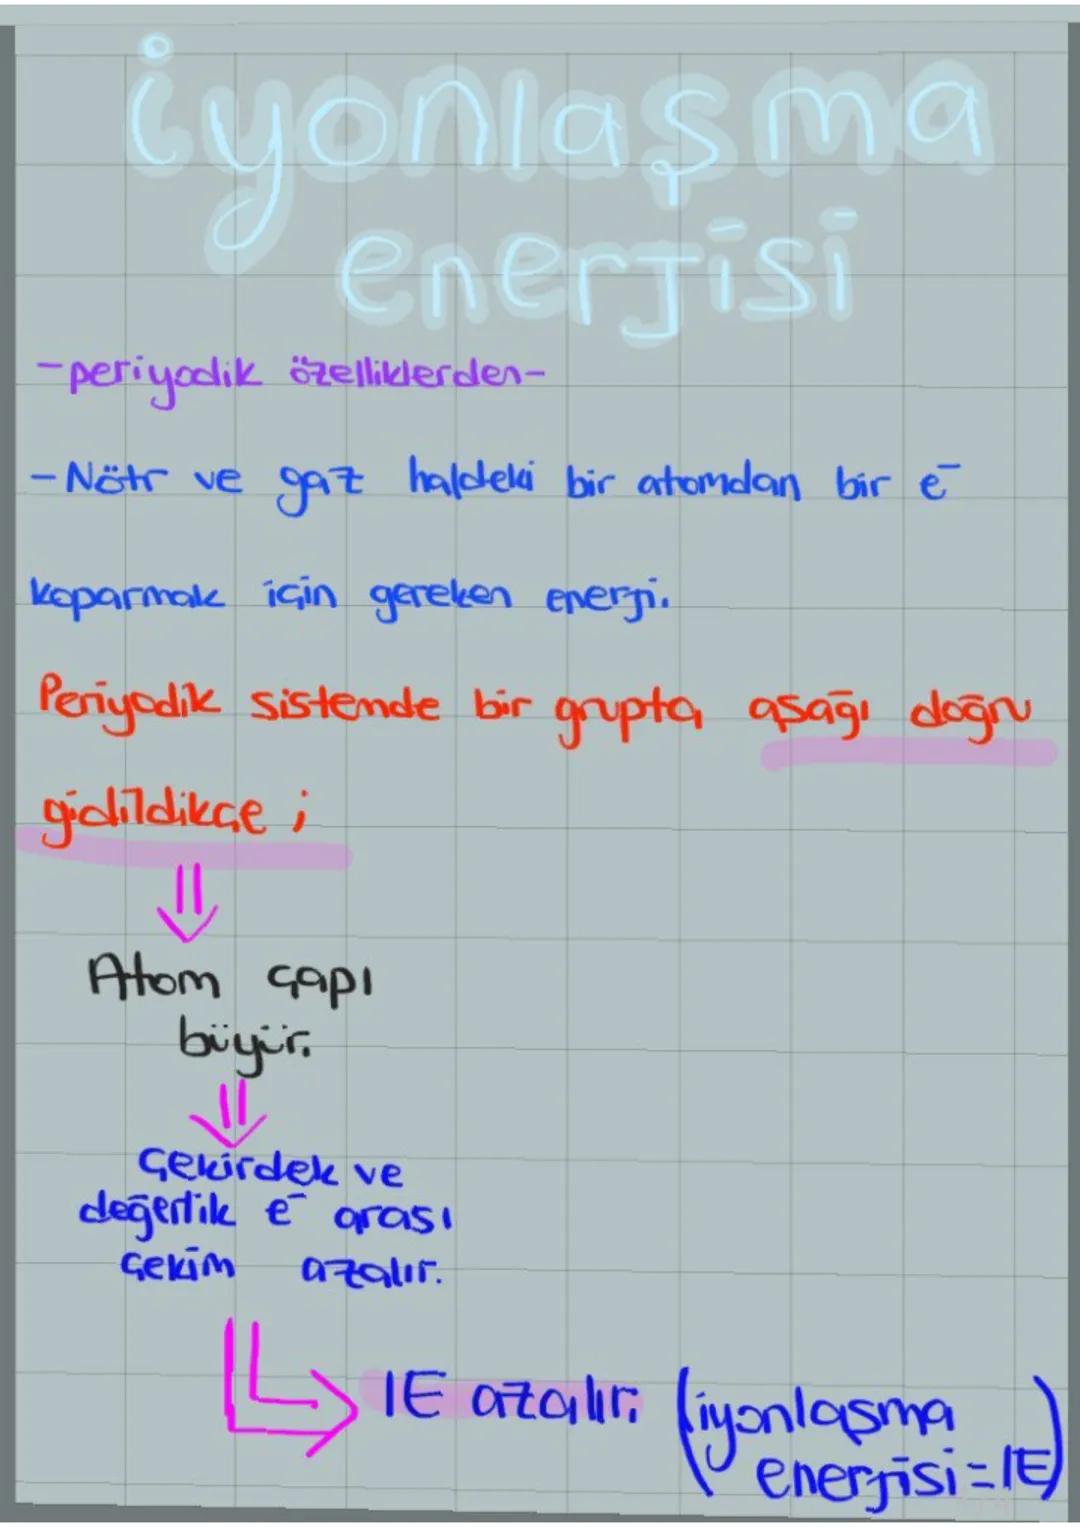 iyonlaşma
enerjisi
-periyodik özelliklerden-
-Nötr ve gaz haldeki bir atomdan bir e⁻
koparmak için gereken enerji.
Periyodik sistemde bir grupta aşağı doğru
gidildikçe ;
⇓
Atom çapı
büyür.
⇓
Çekirdek ve
değerlik e⁻ arası
çekim azalır.
IE azalır. (iyonlaşma
enerjisi = IE)